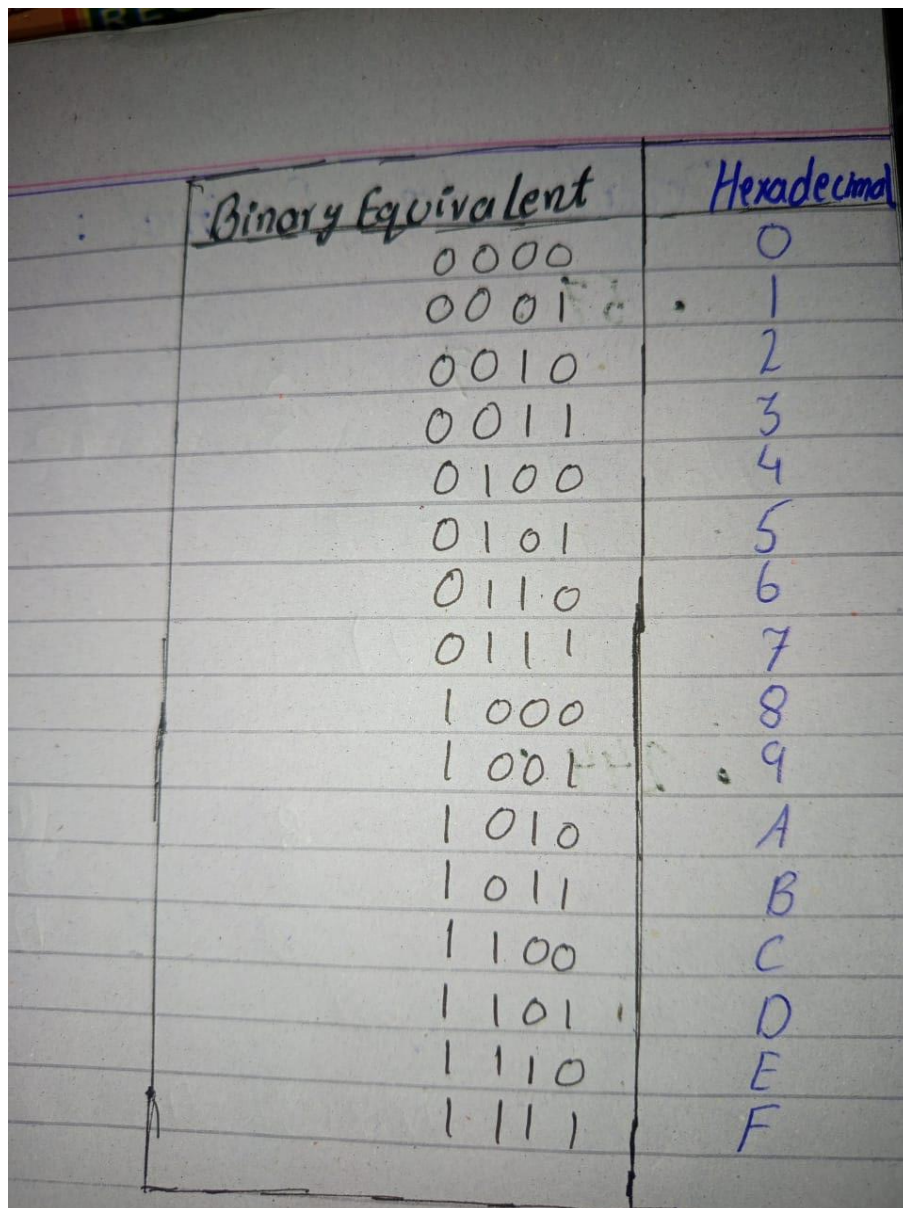 Binary Equivalent Hexadecimal
0000 0
0001 1
0010 2
0011 3
0100 4
0101 5
0110 6
0111 7
1000 8
1001 9
1010 A
1011 B
1100 C
1101 D
1110 E
1111 F